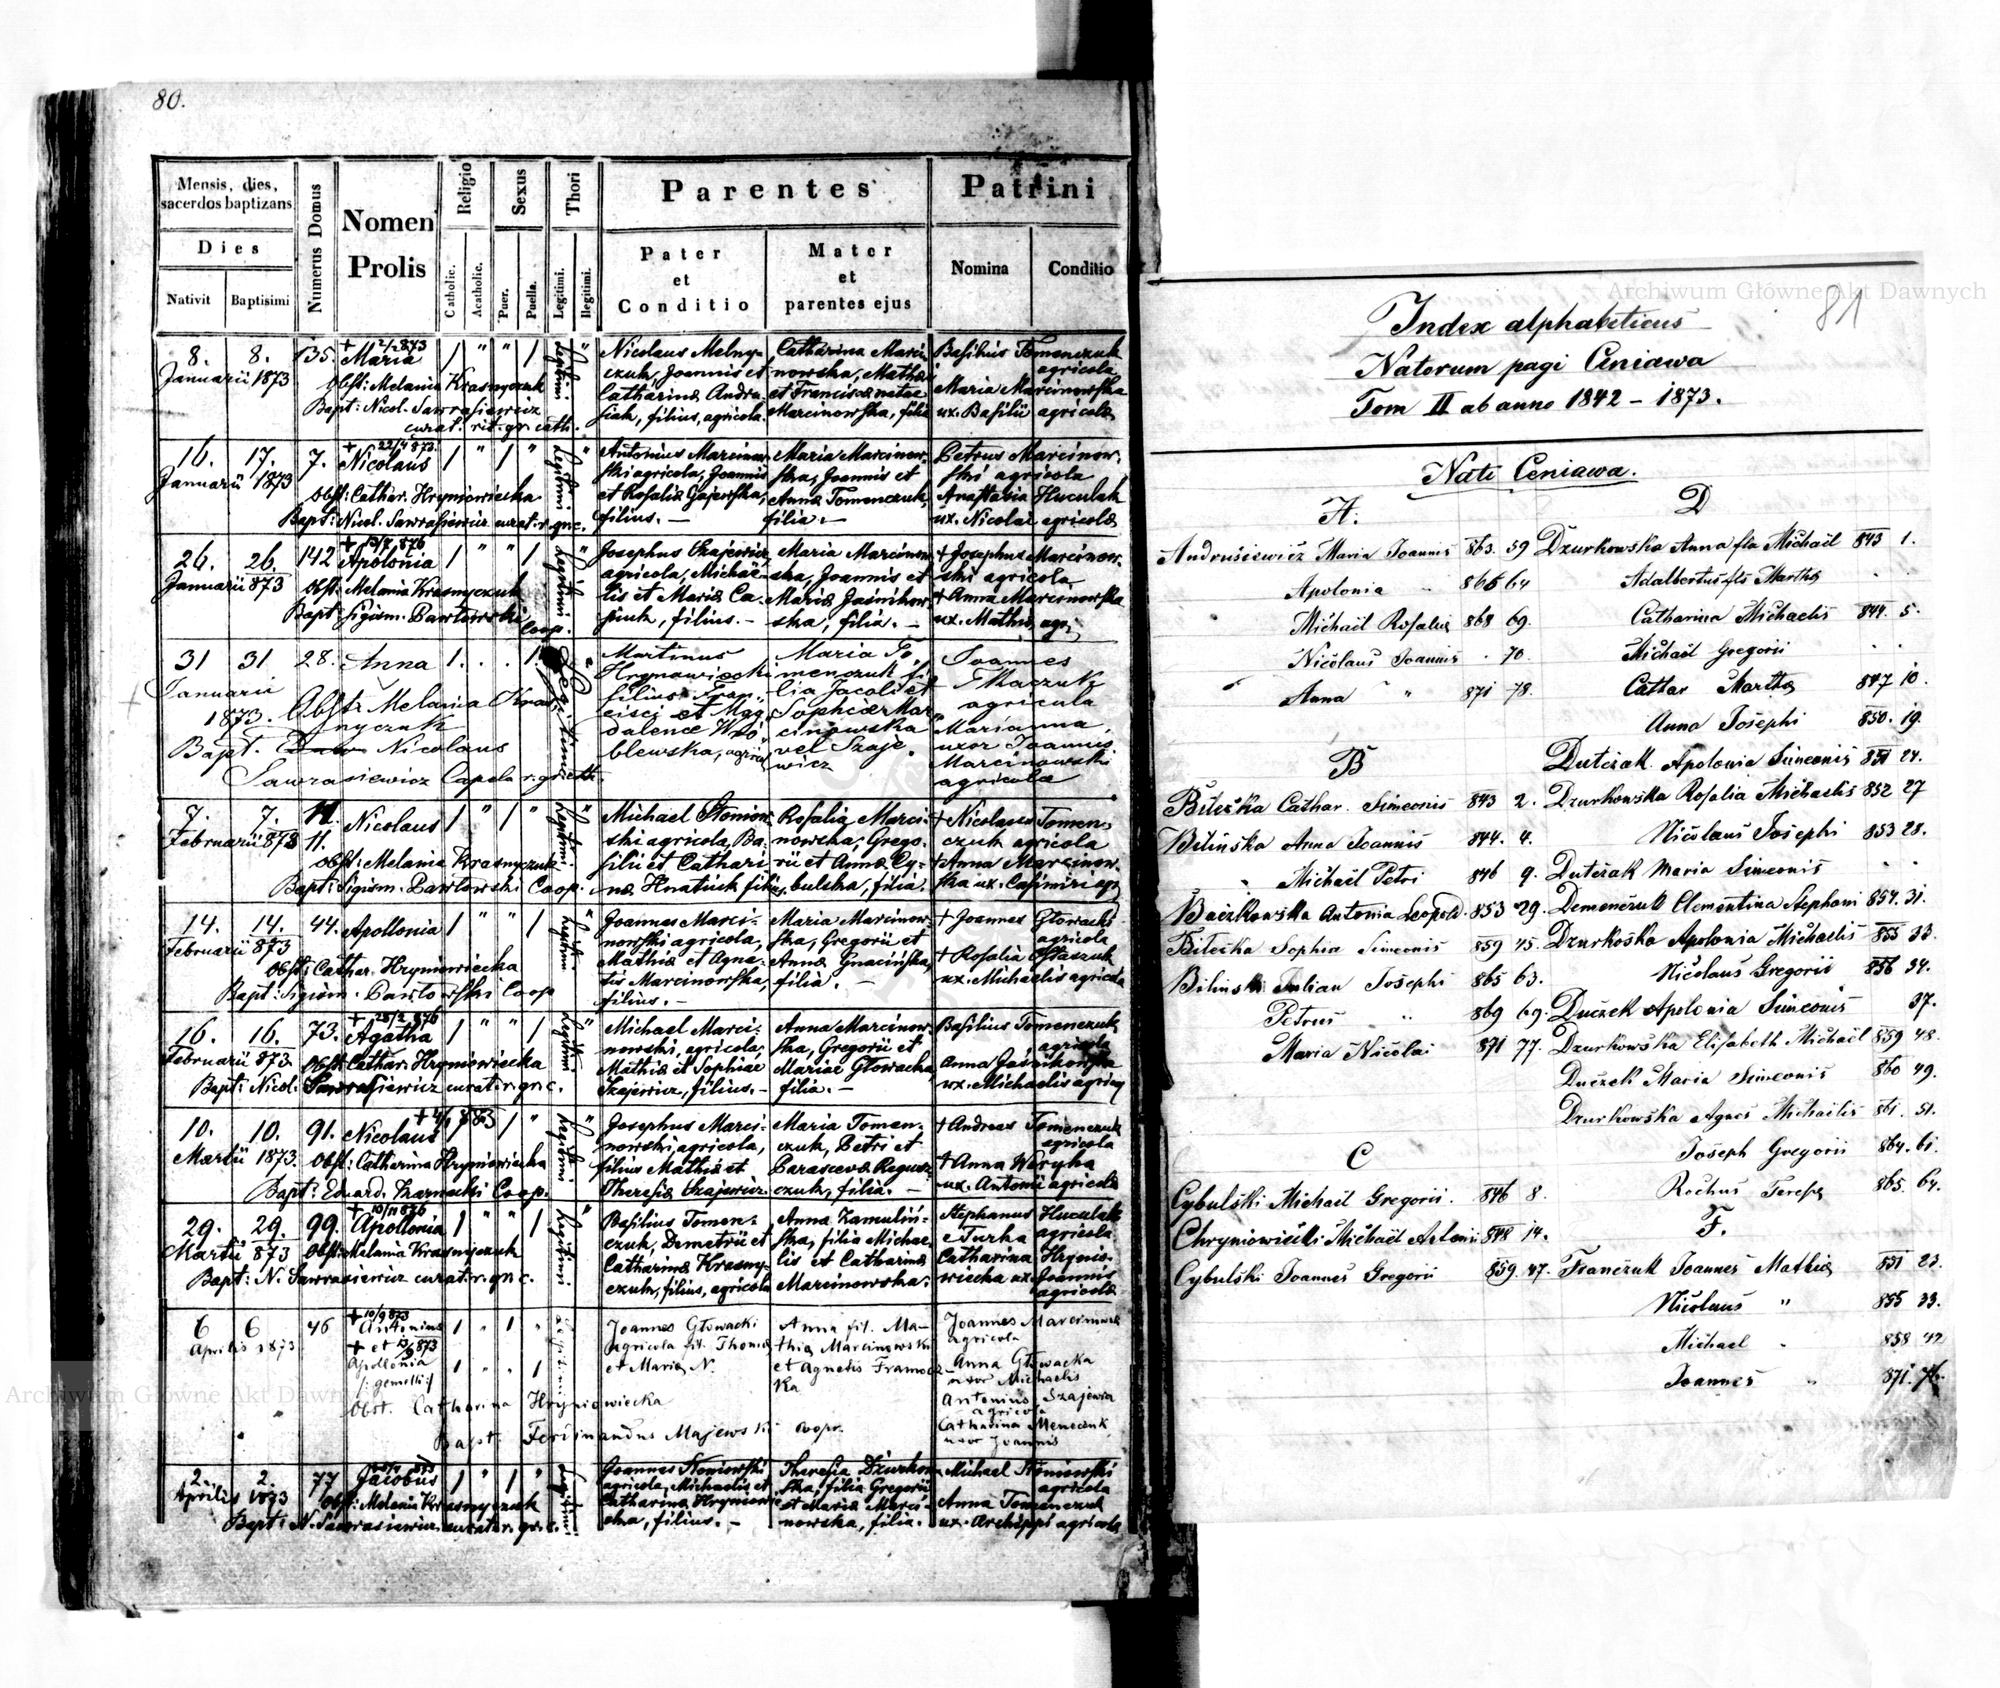 80.
Mensis, dies, sacerdos baptizans
Dies
Nativit
Baptisimi
Numerus Domus
Nomen Prolis
Religio
Catholic.
Acatholic.
Sexus
Puer.
Puella.
Thori
Legitimi.
Illegitimi.
Parentes
Pater et Conditio
Mater et parentes ejus
Patrini
Nomina
Conditio
8. 8. 135. + 2/2 873
Januarii 1873 Maria 1 " " 1 "
Obst: Melania Krasnyczuk
Bapt: Nicol. Sawrasiewicz
curat. rit. gr. cath.
Nicolaus Melny-
czuk, Joannis et
Catharinæ Andru-
siak, filius, agricola.
Catharina Marci-
nowska, Mathiæ
et Franciscæ natae
Marcinowska, filia
Basilius Tomenczuk
agricola
Maria Marcinowska
ux. Basilii agricolæ
16. 17. 7. + 22/4 873.
Januarii 1873 Nicolaus 1 " 1 " "
Obst: Cathar. Hryniowiecka
Bapt: Nicol. Sawrasiewicz curat. r. gr. c.
Antonius Marcinow-
ski agricola, Joannis
et Rosaliæ Gajewska,
filius. —
Maria Marcinow-
ska, Joannis et
Annæ Tomenczuk,
filia. —
Petrus Marcinow-
ski agricola
Anastasia Huculak
ux. Nicolai agricolæ
26. 26. 142 + 13/7 876
Januarii 873 Apolonia 1 " " 1 "
Obst: Melania Krasnyczuk
Bapt: Sigism. Pawłowski
Coop.
Josephus Szajewicz,
agricola, Michae-
lis et Mariæ Ca-
piuk, filius. —
Maria Marcinow-
ska, Joannis et
Mariæ Jaśnikow-
ska, filia. —
+ Josephus Marcinow-
ski agricola
+ Anna Marcinowska
ux. Mathiæ agri
31 31 28. Anna 1 . . 1.
Januarii
1873. Obst: Melania Kras-
nyczuk
Bapt. Nicolaus
Sawrasiewicz Capela. r. gr. cth.
Martinus
Hryniowiecki
filius Fran-
cisci et Mag-
dalence Wró-
blewska, agricol
Maria To-
menczuk fi-
lia Jacobi et
Sophiæ Mar-
cinowska
vel Szaje-
wicz
Joannes
Tkaczuk
agricula
Marianna,
uxor Joannis
Marcinowski
agricolæ
7. 7. 11.
Februarii 873 Nicolaus 1 " 1 " "
Obst: Melania Krasnyczuk
Bapt: Sigism. Pawłowski Coop.
Michael Słoniow-
ski agricola, Ba-
silii et Cathari
næ Hnatiuk filius,
Rosalia Marci-
nowska, Grego-
rii et Annæ Cy-
bulska, filia.
+ Nicolaus Tomen-
czuk agricola
+ Anna Marcinow-
ska ux. Casimiri agr
14. 14. 44. Apollonia 1 " " 1 "
Februarii 873
Obst: Cathar. Hryniowiecka
Bapt: Sigism. Pawłowski Coop
Joannes Marci-
nowski agricola,
Mathiæ et Agne-
tis Marcinowska,
filius. —
Maria Marcinow-
ska, Gregorii et
Annæ Gnacińska,
filia. —
+ Joannes Głowacki
agricola
+ Rosalia
ux. Michaelis agricola
16. 16. 73. + 28/2 876
Februarii 873 Agatha 1 " " 1 "
Obst: Cathar. Hryniowiecka
Bapt: Nicol. Sawrasiewicz curat. r. gr. c.
Michael Marci-
nowski, agricola,
Mathiæ et Sophiae
Szajewicz, filius. —
Anna Marcinow-
ska, Gregorii et
Mariae Głowacka,
filia. —
Basilius Tomenczuk
agricola
Anna Jaśnikowska
ux. Michaelis agricol
10. 10. 91. Nicolaus 1 " 1 " "
Martii 1873. Obst: Catharina Hryniowiecka
Bapt: Eduard. Czarnecki Coop.
Josephus Marci-
nowski, agricola,
filius Mathiæ et
Theresiæ Szajewicz.
Maria Tomen-
czuk, Petri et
Parascevæ Regusz-
czuk, filia. —
+ Andreas Tomenczuk
agricola
+ Anna Weryha
ux. Antonii agricolæ
29. 29. 99. + 10/11 876
Martii 873 Apollonia 1 " " 1 "
Obst: Melania Krasnyczuk
Bapt: N. Sawrasiewicz curat. r. gr. c.
Basilius Tomen-
czuk, Demetrii et
Catharinæ Krasny-
czuk, filius, agricola
Anna Zamuliń-
ska, filia Michae-
lis et Catharinæ
Marcinowska.
Stephanus Huculak
e Turka agricola
Catharina Hrynio-
wiecka ux. Joannis
agricolæ
6 6 46 + 10/9 873
Aprilis 1873 Antonius 1 " 1 "
+ et 13/9 873
Apollonia 1 " " 1
/: gemelli :/
Obst. Catharina Hryniowiecka
Bapt. Ferdinandus Majewski coopr.
Joannes Głowacki
agricola fil. Thomæ
et Mariæ N.
Anna fil. Ma-
thiæ Marcinowski
et Agnetis Framoc-
ka
Joannes Marcinowski
agricola
Anna Głowacka
uxor Michaelis
Antonius Szajewicz
agricola
Catharina Menczuk
uxor Joannis
2. 2. 77 Jacobus 1 " 1 "
Aprilis 1873
Obst: Melania Krasnyczuk
Bapt: N. Sawrasiewicz curat. r. gr. c.
Joannes Słoniowski
agricola, Michaelis et
Catharinæ Hryniowie
cka, filius. —
Theresia Dziurkow-
ska, filia Gregorii
et Mariæ Marci-
nowska, filia.
Michael Słoniowski
agricola
Anna Tomenczuk
ux. Archippi agricola
81
Index alphabeticus
Natorum pagi Ceniawa
Tom II ab anno 1842 – 1873.
Nati Ceniawa.
A.
Andrusiewicz Maria Joannis 863. 59
Apolonia " 866 64
Michaël Rosaliæ 868 69.
Nicolaus Joannis . 70.
Anna " 871 78.
B
Bileska Cathar. Simeonis 843 2.
Bilinska Anna Joannis 844. 4.
Michaël Petri 846 9.
Baczkowska Antonia Leopold. 853 29.
Bileska Sophia Simeonis 859 45.
Bilinski Julian Josephi 865 63.
Petrus " 869 69.
Maria Nicolai 871 77.
C
Cybulski Michaël Gregorii. 846 8.
Chryniowiecki Michaël Antonii 848 14.
Cybulski Joannes Gregorii 859. 47.
D
Dzurkowska Anna fla Michaël 843 1.
Adalbertus fls Marthæ . .
Catharina Michaelis 844. 5.
Michaël Gregorii . .
Cathar Marthæ 847 10.
Anna Josephi 850. 19.
Dutczak Apolonia Simeonis 851 24.
Dzurkowska Rosalia Michaelis 852 27
Nicolaus Josephi 853 28.
Dutczak Maria Simeonis . .
Demenczuk Clementina Stephani 854. 31.
Dzurkoska Apolonia Michaelis 855 33.
Nicolaus Gregorii 856 34.
Duczek Apolonia Simeonis 37.
Dzurkowska Elisabeth Michaël 859 48.
Duczek Maria Simeonis 860 49.
Dzurkowska Agnes Michaelis 861. 51.
Joseph Gregorii 864. 61.
Rochus Teresæ 865. 64.
F.
Franczuk Joannes Mathiæ 851 23.
Nicolaus " 855 33.
Michael . 858 42
Joannes " 871. 76.
Archiwum Główne Akt Dawnych
Archiwum Główne Akt Dawnych